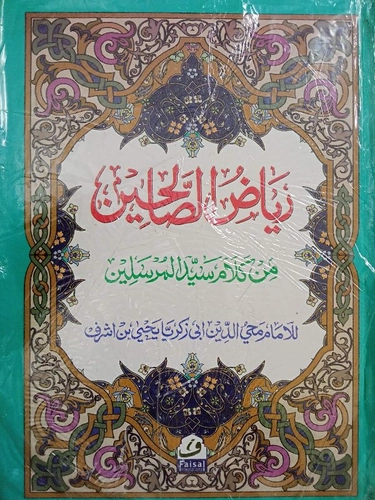 رياض الصالحين
من كلام سيد المرسلين
للامام محي الدين ابى زكريا يحيى بن اشرف
ف
Faisal